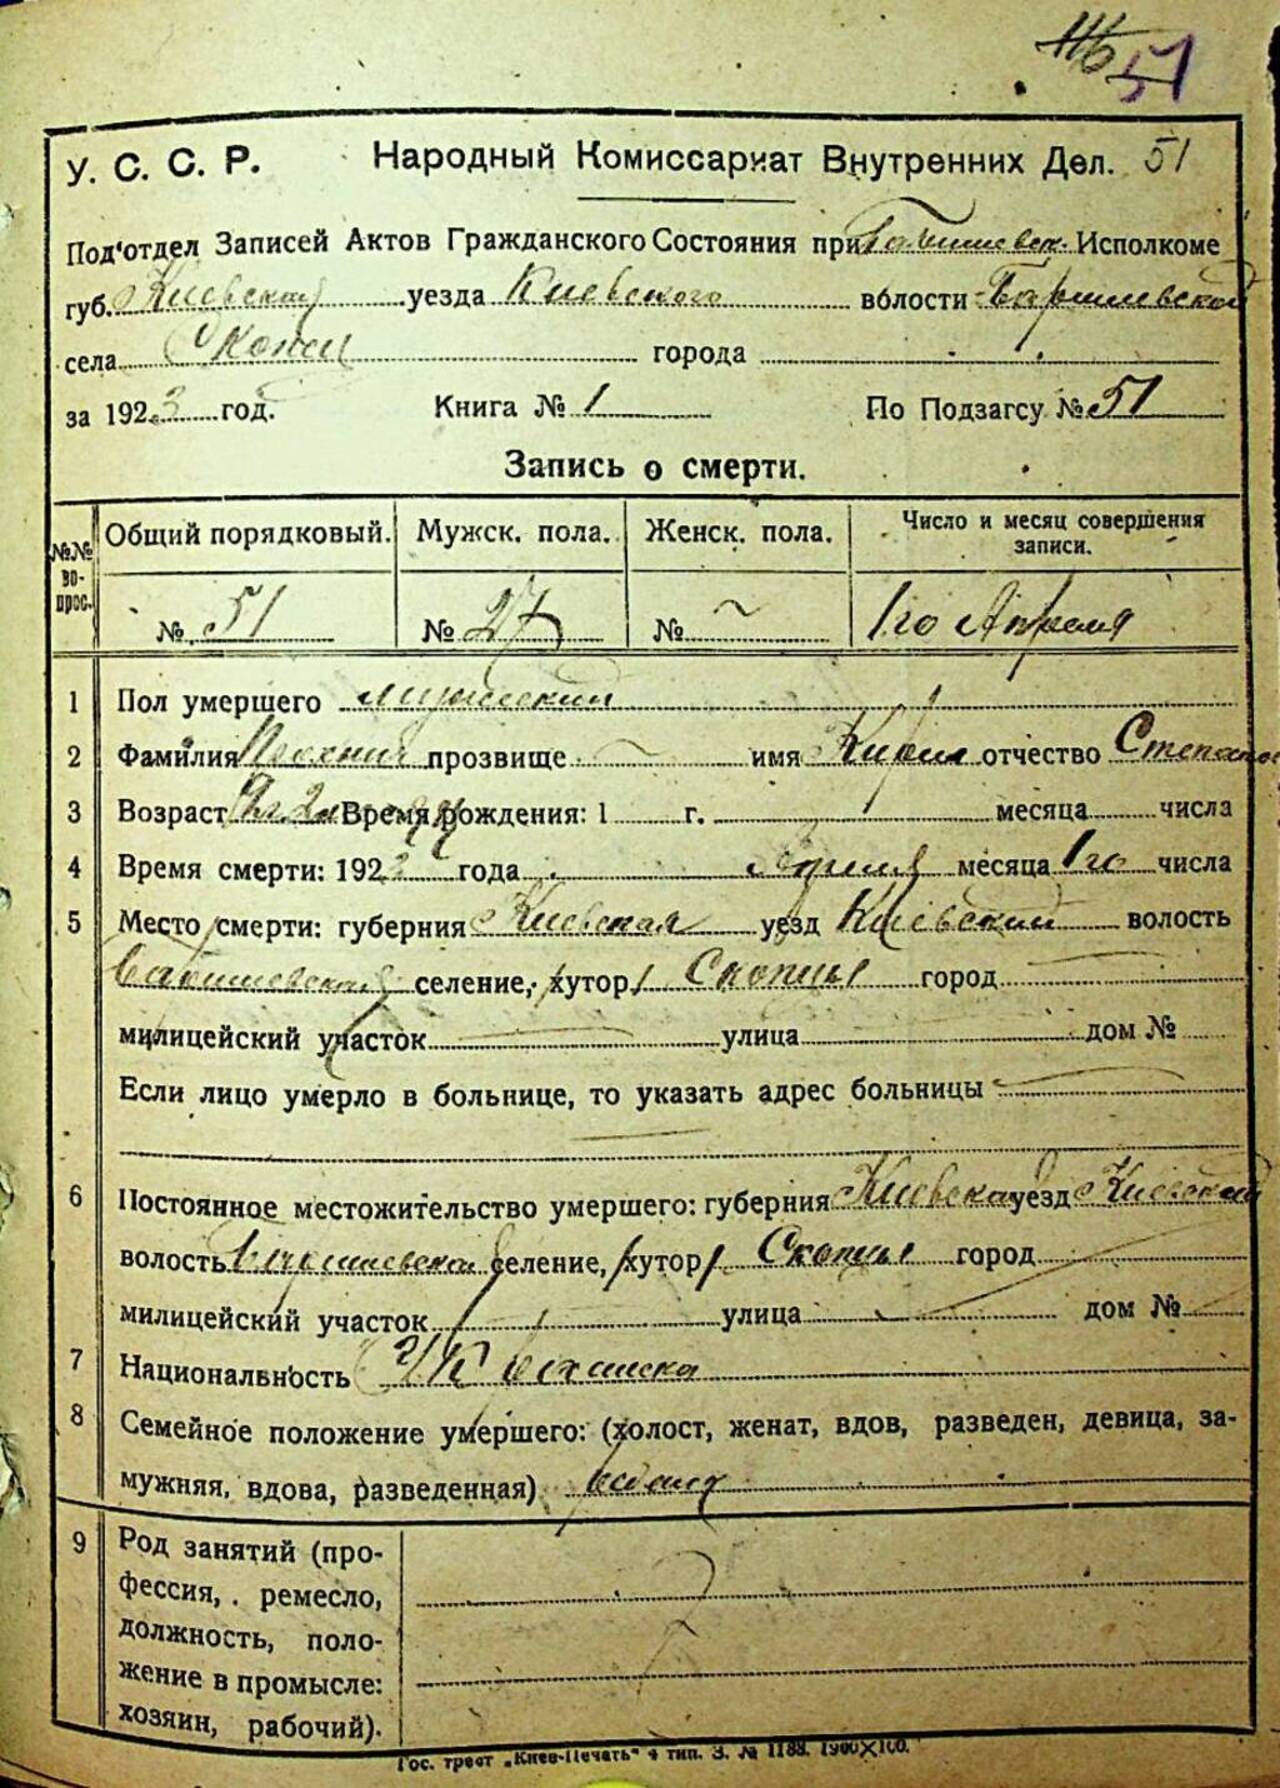 116 51
У. С. С. Р. Народный Комиссариат Внутренних Дел. 51
Под'отдел Записей Актов Гражданского Состояния при Исполкоме
губ. Киевской уезда Киевского волости Барышевской
села города
за 1923 год. Книга № 1 По Подзагсу № 51
Запись о смерти.
№№ вопрос. Общий порядковый. Мужск. пола. Женск. пола. Число и месяц совершения записи.
№ 51 № 27 № 1го Апреля
1 Пол умершего мужеский
2 Фамилия прозвище имя Кирил отчество
3 Возраст Время рождения: 1 г. месяца числа
4 Время смерти: 1923 года Апреля месяца 1го числа
5 Место смерти: губерния Киевская уезд Киевский волость
Барышевская селение, хутор Скопцы город
милицейский участок улица дом №
Если лицо умерло в больнице, то указать адрес больницы
6 Постоянное местожительство умершего: губерния Киевская уезд Киевский
волость Барышевская селение, хутор Скопцы город
милицейский участок улица дом №
7 Национальность
8 Семейное положение умершего: (холост, женат, вдов, разведен, девица, за-
мужняя, вдова, разведенная)
9 Род занятий (про-
фессия, ремесло,
должность, поло-
жение в промысле:
хозяин, рабочий).
Гос. трест „Киев-Печать" 4 тип. З. № 1188. 1900X100.